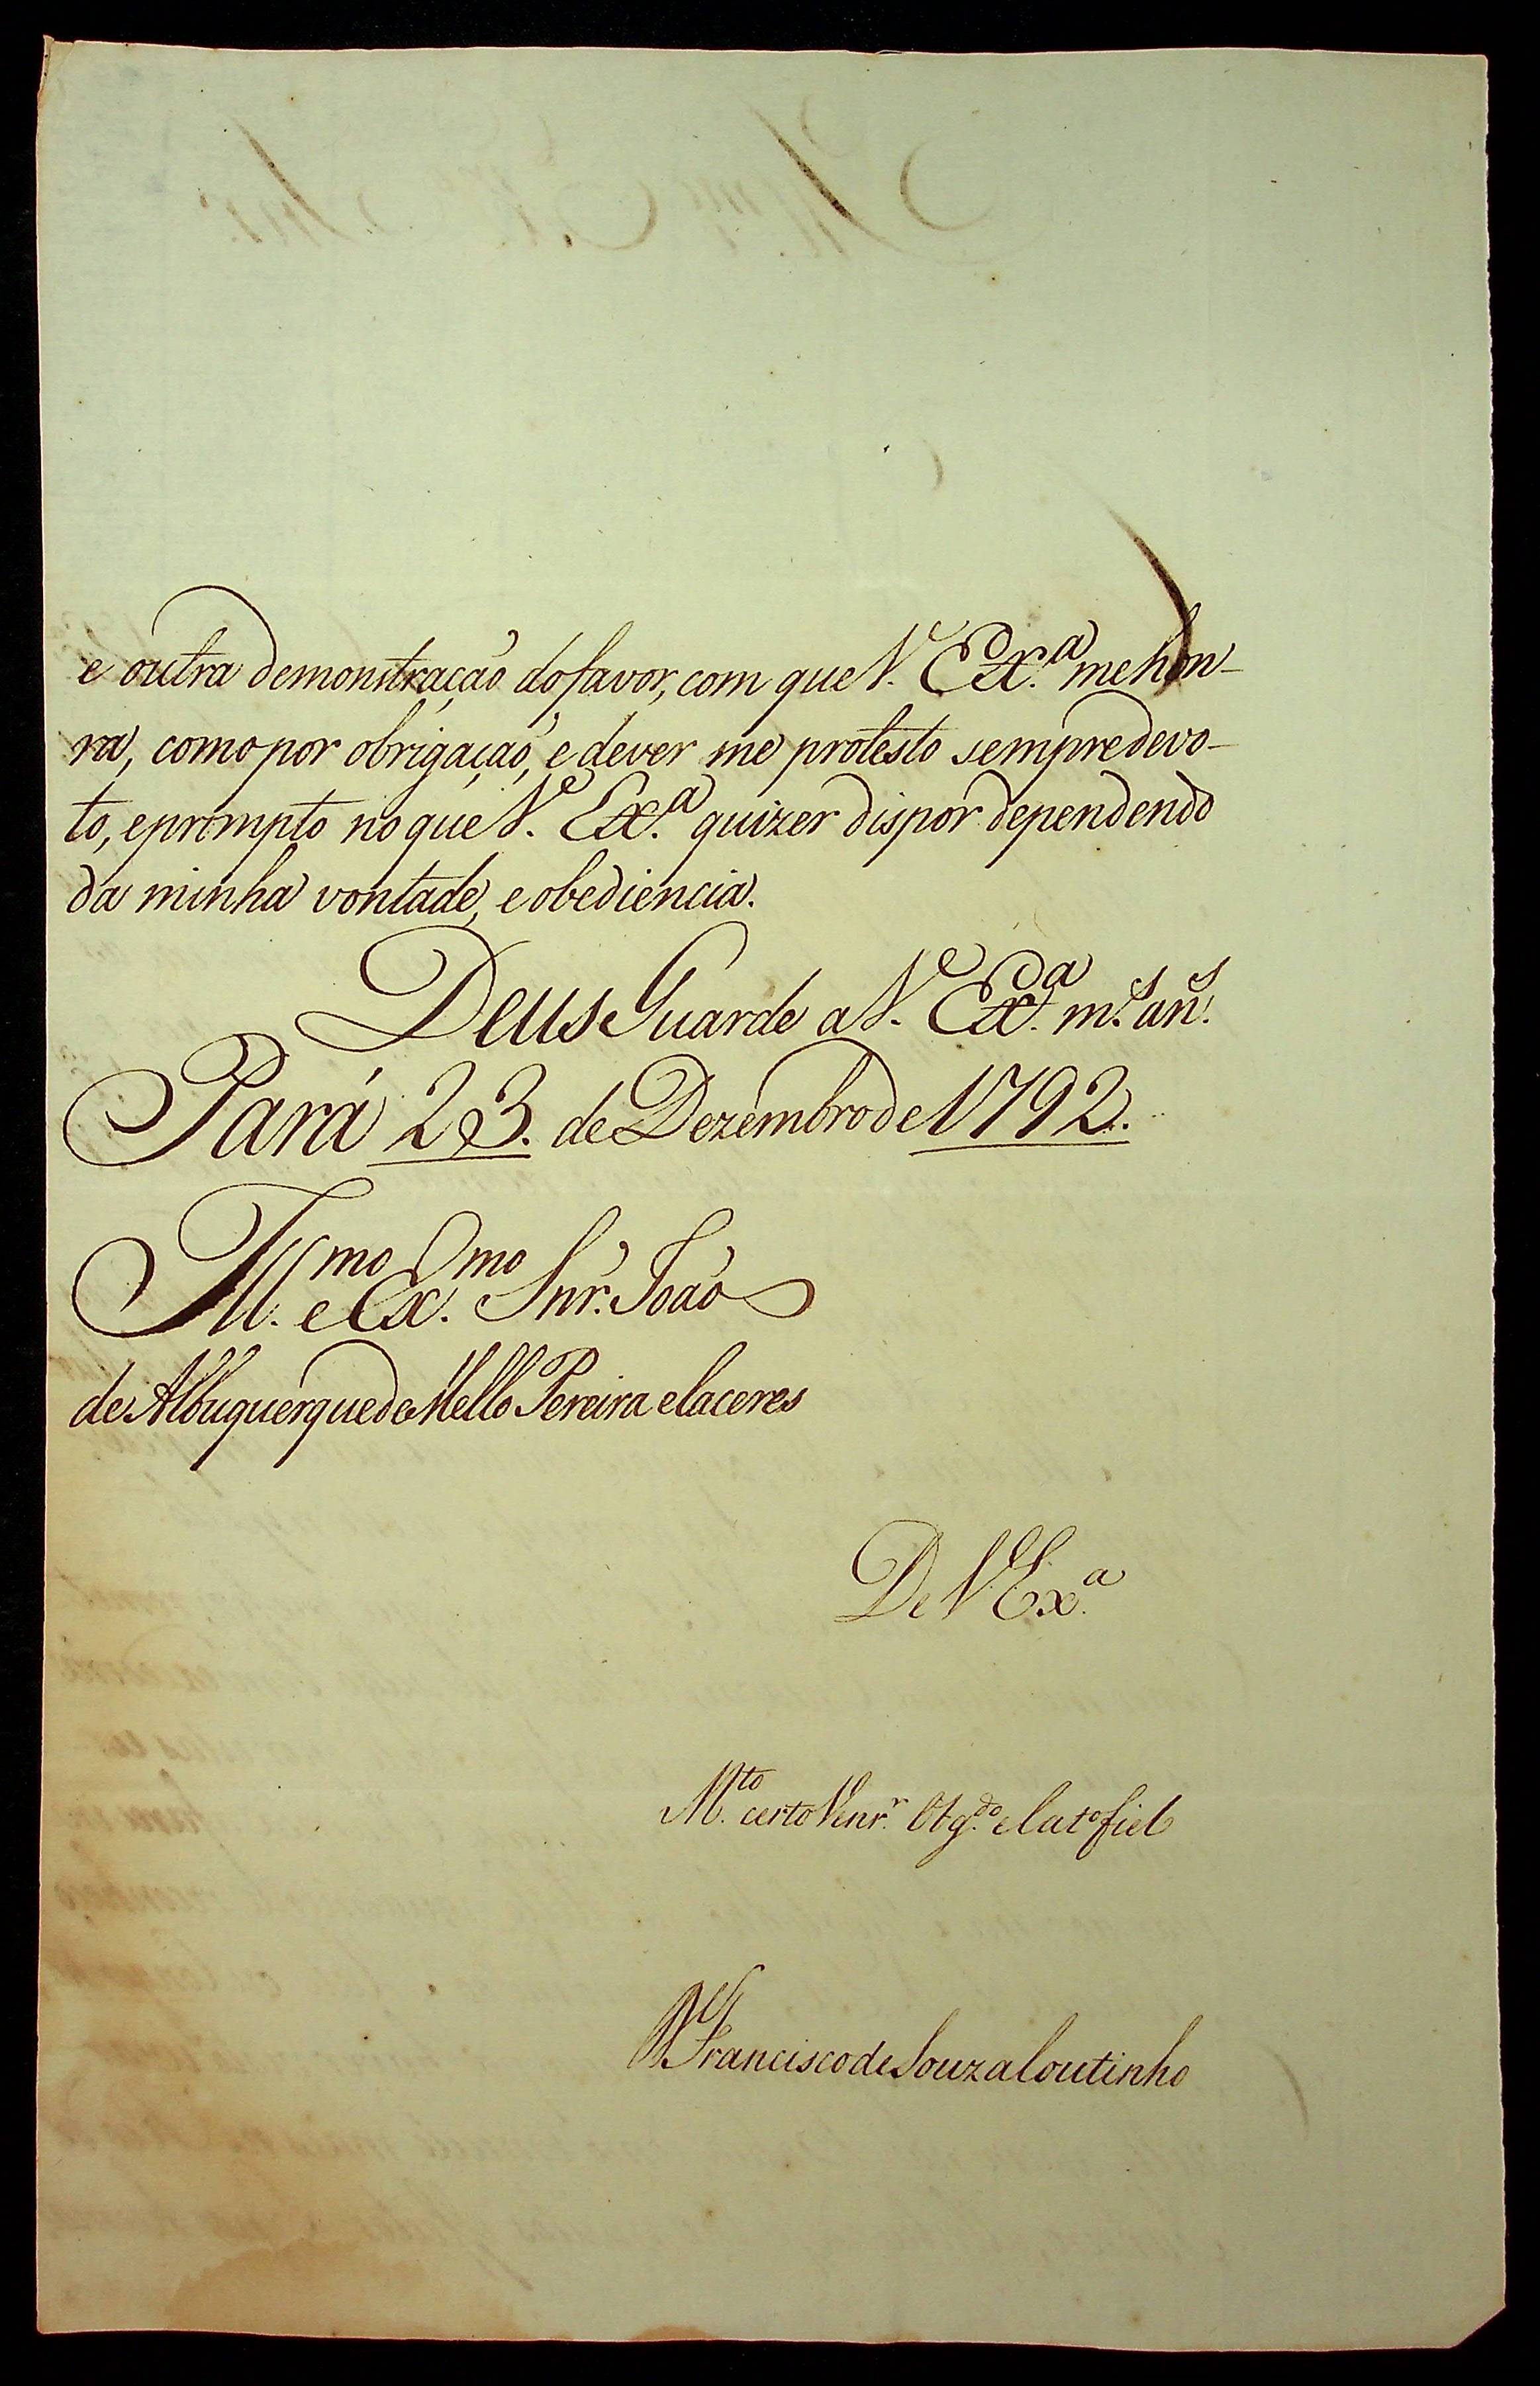 e outra demonstração do favor, com que V. Ex.ª me hon-
ra, como por obrigação, e dever me protesto sempre devo-
to, e prompto no que V. Ex.ª quizer dispor dependendo
da minha vontade, e obediencia.
Deus Guarde a V. Ex.ª m.s an.s
Pará 23. de Dezembro de 1792.
Ill.mo e Ex.mo Snr. João
de Albuquerque de Mello Pereira e Caceres
De V. Ex.ª
M.to certo Venr.r Obg.do e Cat.o fiel
D. Francisco de Souza Coutinho